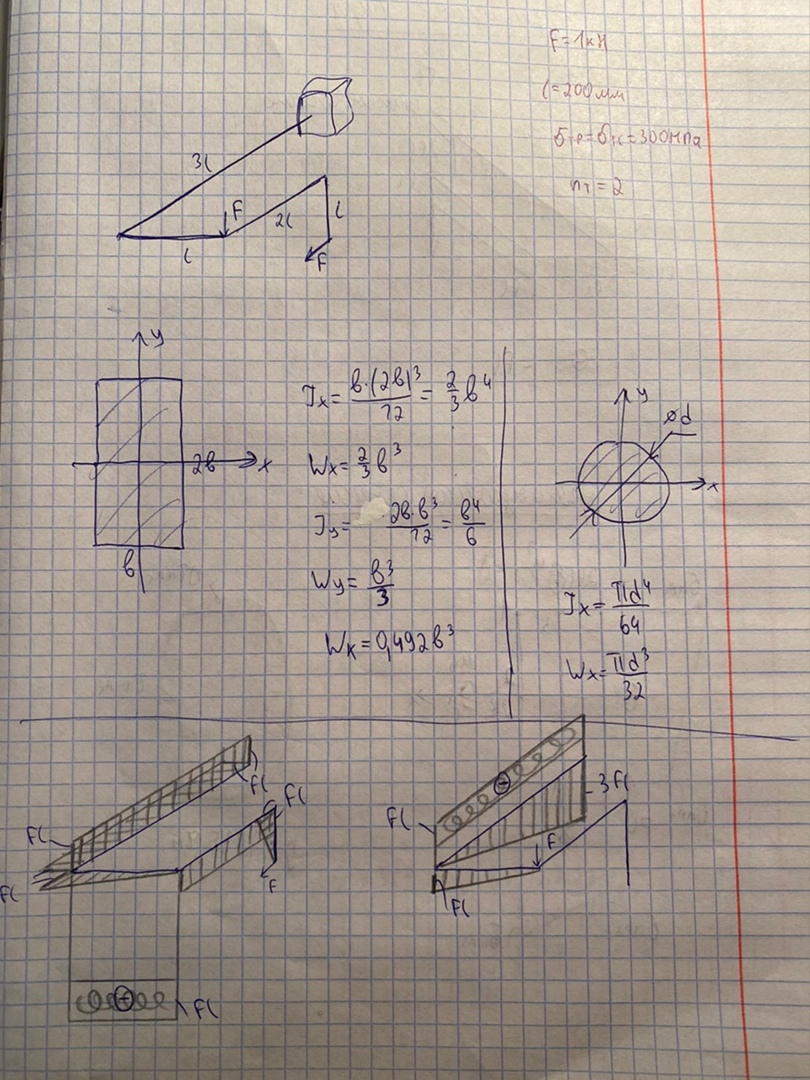 F=1кН
l=200мм
σтр=σтс=300МПа
nт=2
3l
F
l
2l
l
F
y
2в
x
в
Jx=в·(2в)³/12=2/3в⁴
Wx=2/3в³
Jy=2в·в³/12=в⁴/6
Wy=в³/3
Wк=0,492в³
y
ød
x
Jx=πd⁴/64
Wx=πd³/32
Fl
Fl
Fl
Fl
F
Fl
3Fl
Fl
F
Fl